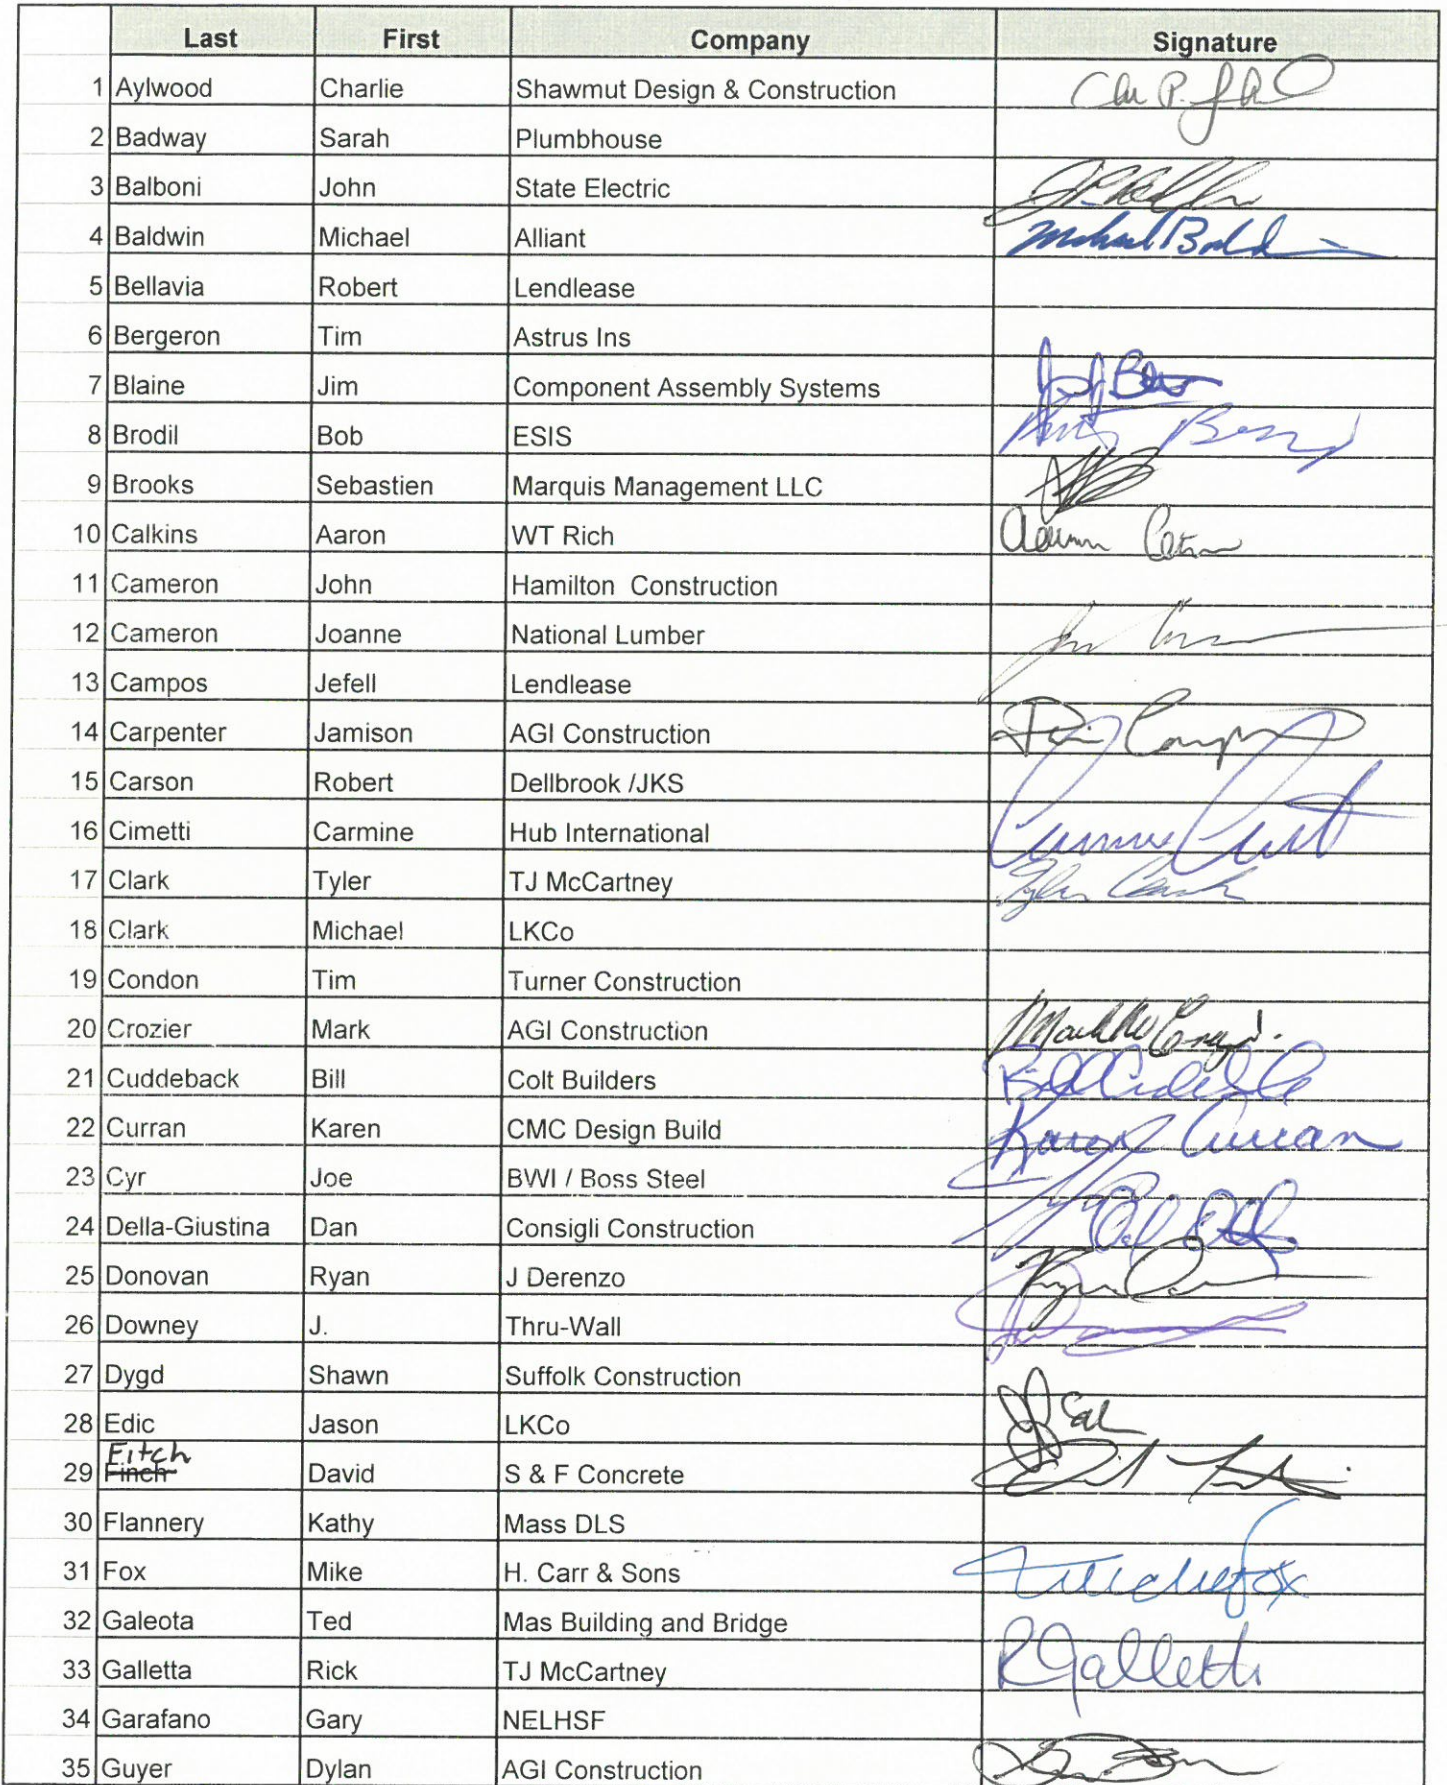 Last First Company Signature
1 Aylwood Charlie Shawmut Design & Construction
2 Badway Sarah Plumbhouse
3 Balboni John State Electric
4 Baldwin Michael Alliant Michael Bald
5 Bellavia Robert Lendlease
6 Bergeron Tim Astrus Ins
7 Blaine Jim Component Assembly Systems
8 Brodil Bob ESIS
9 Brooks Sebastien Marquis Management LLC
10 Calkins Aaron WT Rich
11 Cameron John Hamilton Construction
12 Cameron Joanne National Lumber
13 Campos Jefell Lendlease
14 Carpenter Jamison AGI Construction
15 Carson Robert Dellbrook /JKS
16 Cimetti Carmine Hub International
17 Clark Tyler TJ McCartney Tyler Clark
18 Clark Michael LKCo
19 Condon Tim Turner Construction
20 Crozier Mark AGI Construction
21 Cuddeback Bill Colt Builders
22 Curran Karen CMC Design Build Karen Curran
23 Cyr Joe BWI / Boss Steel
24 Della-Giustina Dan Consigli Construction
25 Donovan Ryan J Derenzo
26 Downey J. Thru-Wall
27 Dygd Shawn Suffolk Construction
28 Edic Jason LKCo
Fitch
29 Finch David S & F Concrete
30 Flannery Kathy Mass DLS
31 Fox Mike H. Carr & Sons
32 Galeota Ted Mas Building and Bridge
33 Galletta Rick TJ McCartney R Galletta
34 Garafano Gary NELHSF
35 Guyer Dylan AGI Construction